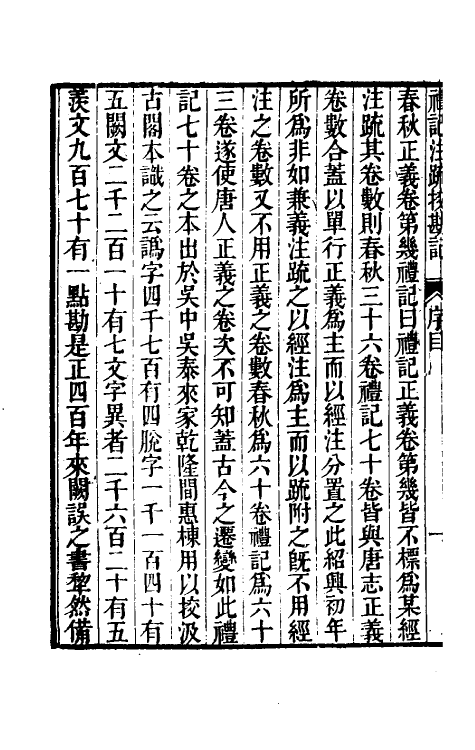 禮記注疏挍勘記 序目 一
春秋正義卷第幾禮記曰禮記正義卷第幾皆不標爲某經
注疏其卷數則春秋三十六卷禮記七十卷皆與唐志正義
卷數合蓋以單行正義爲主而以經注分置之此紹興初年
所爲非如兼義注疏之以經注爲主而以疏附之旣不用經
注之卷數又不用正義之卷數春秋爲六十卷禮記爲六十
三卷遂使唐人正義之卷次不可知蓋古今之遷變如此禮
記七十卷之本出於吳中吳泰來家乾隆間惠棟用以挍汲
古閣本識之云譌字四千七百有四脫字一千一百四十有
五闕文二千二百一十有七文字異者二千六百二十有五
羨文九百七十有一點勘是正四百年來闕誤之書犂然備